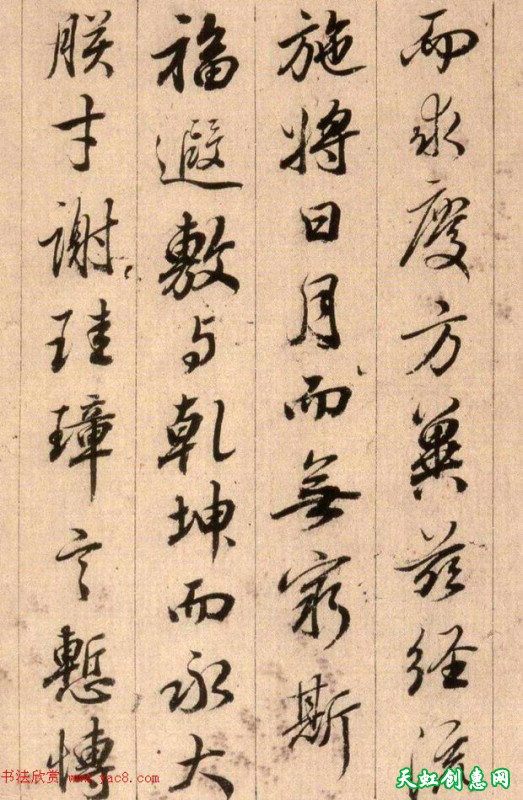 而求慶方冀茲經流
施將日月而無窮斯
福遐敷与乾坤而永大
朕才謝珪璋言慙博
书法欣赏 www.yac8.com
天虹创惠网